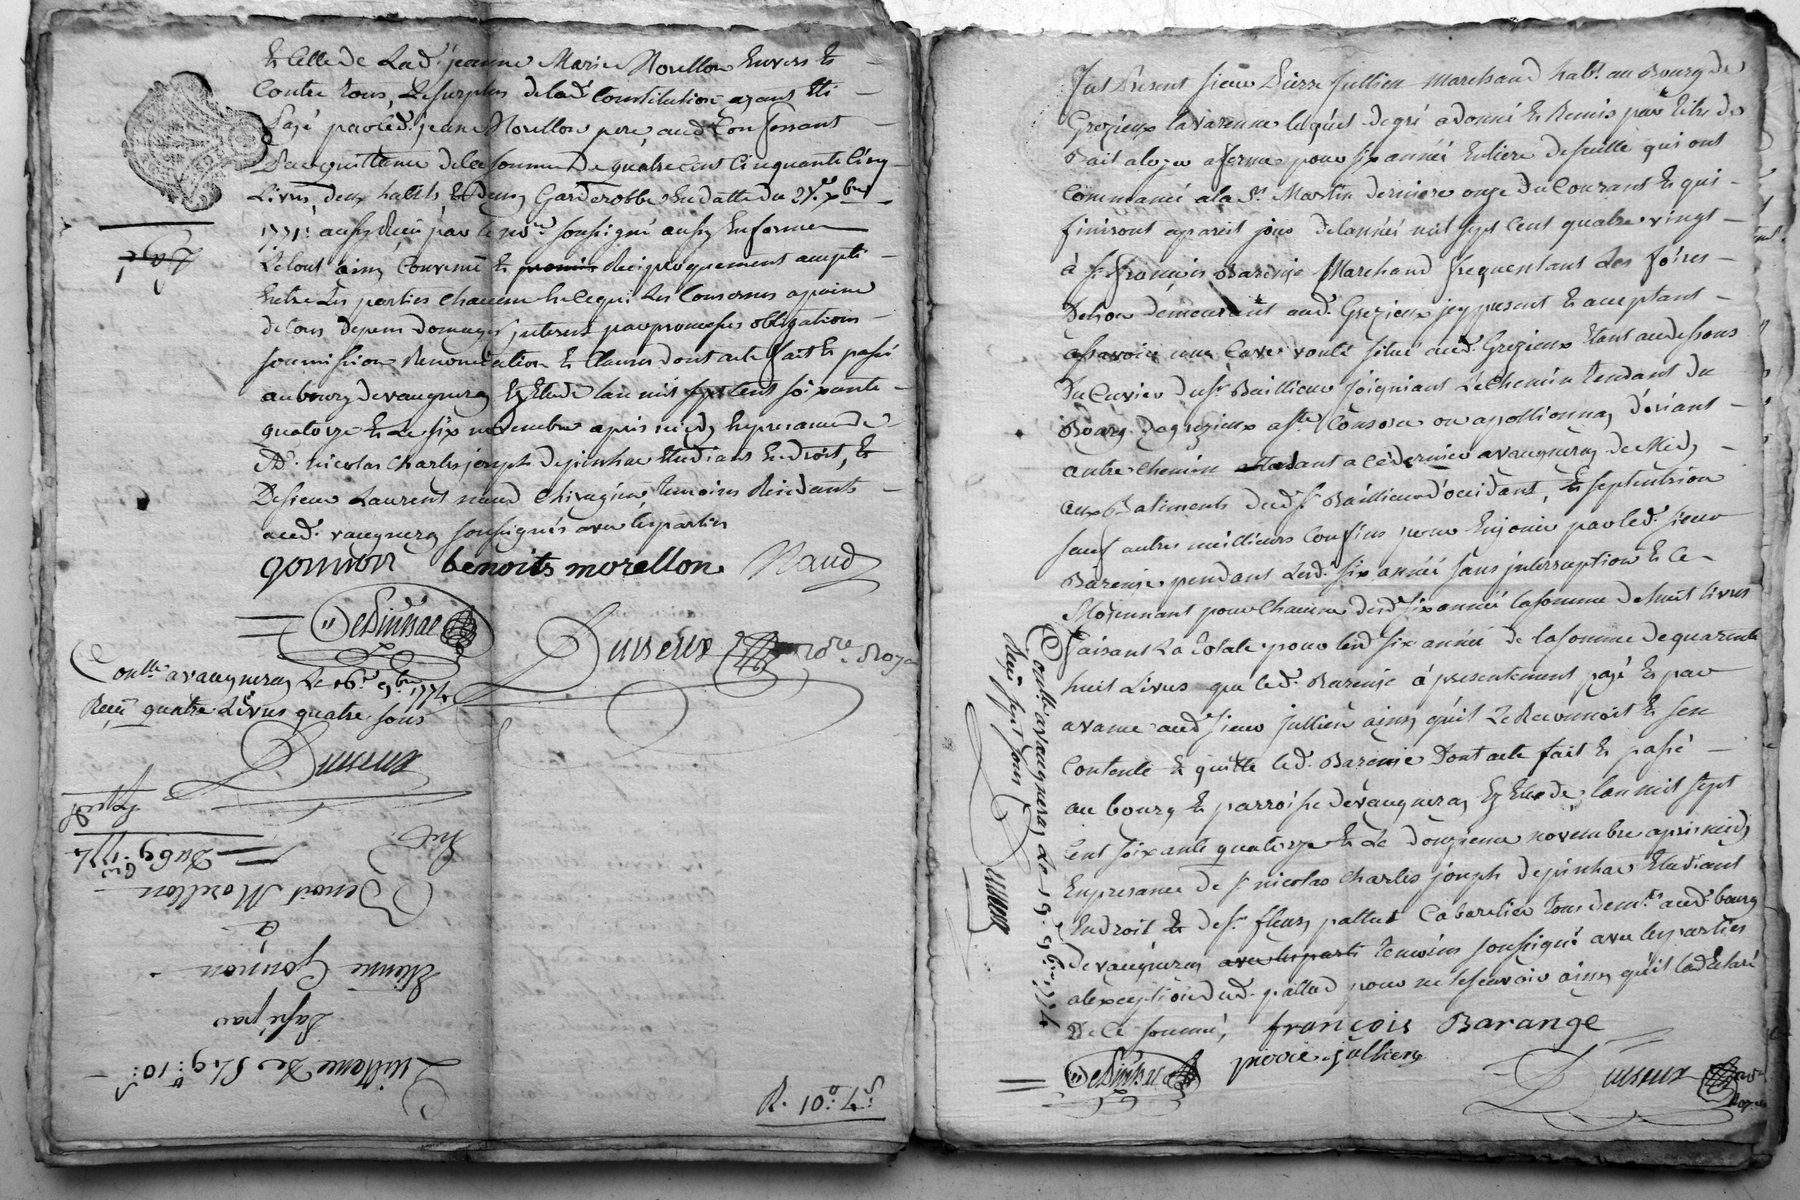 Et Celle de Lad. jeanne Marie Morellon Envers Et
Contre tous, Le surplus delad. Constitution ayant Eté
Payé parled. jean Morellon pere aud.
quittance dela somme De quatre cent Cinquante Cinq
Livres, deux habits Et deux Garderobbe En datte du xbre
1771: aussy Recu par le no.re soussigné aussy En forme
Le tout ainsy Convenu Et promis Reciproquement accepté
Entre Les parties Chacune En ce qui Les Concerne apeine
detous depens Domages interest par promesses obligations
soumission Renonciation Et Clauses dont acte fait Et passé
au bourg devaugneray Etude lan mil sept cent soixante
quatorze Et Le six novembre apres midy En presance de
Nicolas Charles joseph depinhac Etudiant En droit, Et
De sieur Laurent naud Chirugien temoins Residants
aud. vaugneray soussignés avec les parties
gonnon benoits morellon Naud
Depinhac
Dusseux no.re Roya
Con.lle avaugneray Le 16.e 9bre 1774
Recu quatre Livres quatre sous
Dusseux
Du 6 9bre 1774
Benoit Morellon
à
Etienne Gonnon
Passé par
Quittance De 10
R. 10: 4s
Fut Present sieur Pierre jullien marchand hab.t au Bourg de
Grezieux lavarenne lequel degré adonné Et Remis par titre de
Bail aloyer aferme pour six année Entiere desuitte qui ont
Commancé ala St. Martin derniere onze du Courant Et qui
finiront apareil jour delannée mil sept Cent quatre vingt
à sr. françois Barenje Marchand frequentant Les foires
demeurant aud. Grezieux jcy present Et acceptant
assavoir une Cave voutée situé aud. Grezieux Etant audessous
Du Cuvier du sr. Baillieux joignant Le Chemin tendant du
Bourg dagrezieux a ste Consorce ou apollionnay d'oriant
autre Chemin tendant a Ce dernier avaugneray de Midy
aux Batiments dud. sr. Baillieux d'occidant, Et septentrion
sauf autres meilleurs Confins pour En jouir parled. sieur
Barenje pendant Lesd. six année sans jnterruption Et Ce
Moyennant pour Chacune desd. six année lasomme dehuit Livres
faisant La totale pour lesd six année de lasomme de quarante
huit Livres que led. Barenje à presentement payé Et par
avance aud. sieur jullien ainsy quil Le Reconnoit Et sen
Contente Et quitte led. Barenje Dont acte fait Et passé
au bourg Et parroisse devaugneray Etude, lan mil sept
Cent soixante quatorze Et Le douzieme novembre apres midy
En presance de sr. nicolas Charles joseph depinhac Etudiant
En droit Et de sr. fleury pallud Cabaretier tous dem.ts aud. bourg
devaugneray avec les parti temoins soussigné avec les parties
alexception dud. pallud pour ne le scavoir ainsy quil la declaré
De Ce sommé,
françois Barange
pierre jullien
Depinhac
Dusseux no.re Royal
Con.lle avaugneray Le 19. 9bre 1774
Recu sept sous
Dusseux